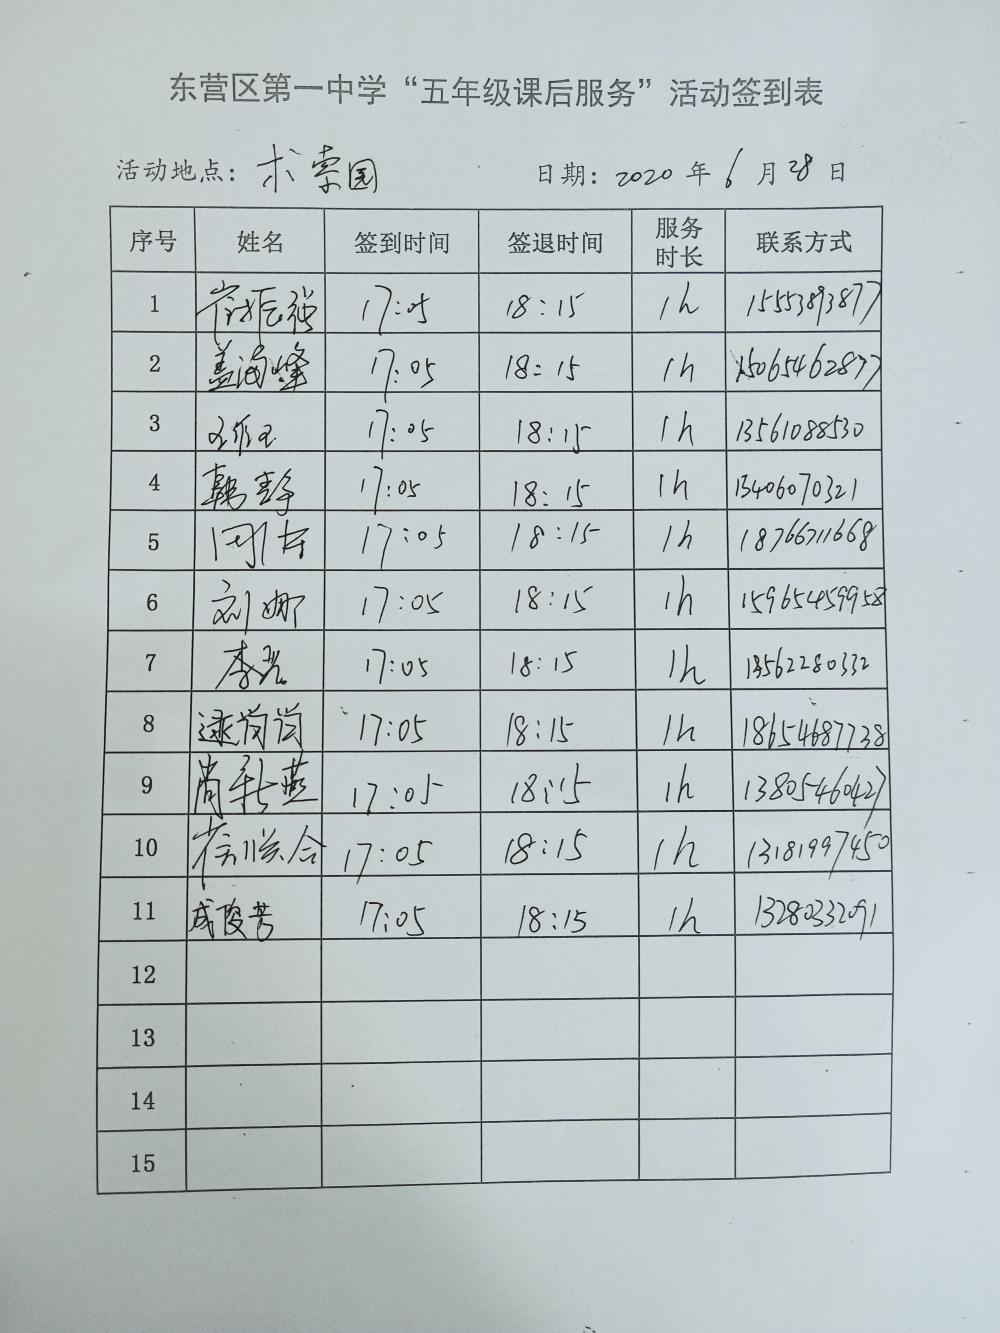 东营区第一中学“五年级课后服务”活动签到表
活动地点：求索园 日期：2020年6月28日
序号 姓名 签到时间 签退时间 服务时长 联系方式
1 崔振强 17:05 18:15 1h 15553893877
2 盖海峰 17:05 18:15 1h 15065462877
3 17:05 18:15 1h 13561088530
4 韩静 17:05 18:15 1h 13406070321
5 17:05 18:15 1h 18766711668
6 刘娜 17:05 18:15 1h 15965459958
7 17:05 18:15 1h 13562280332
8 逯岗岗 17:05 18:15 1h 18654687738
9 尚新燕 17:05 18:15 1h 13805460427
10 17:05 18:15 1h 13181997450
11 成俊芳 17:05 18:15 1h 13280332091
12
13
14
15